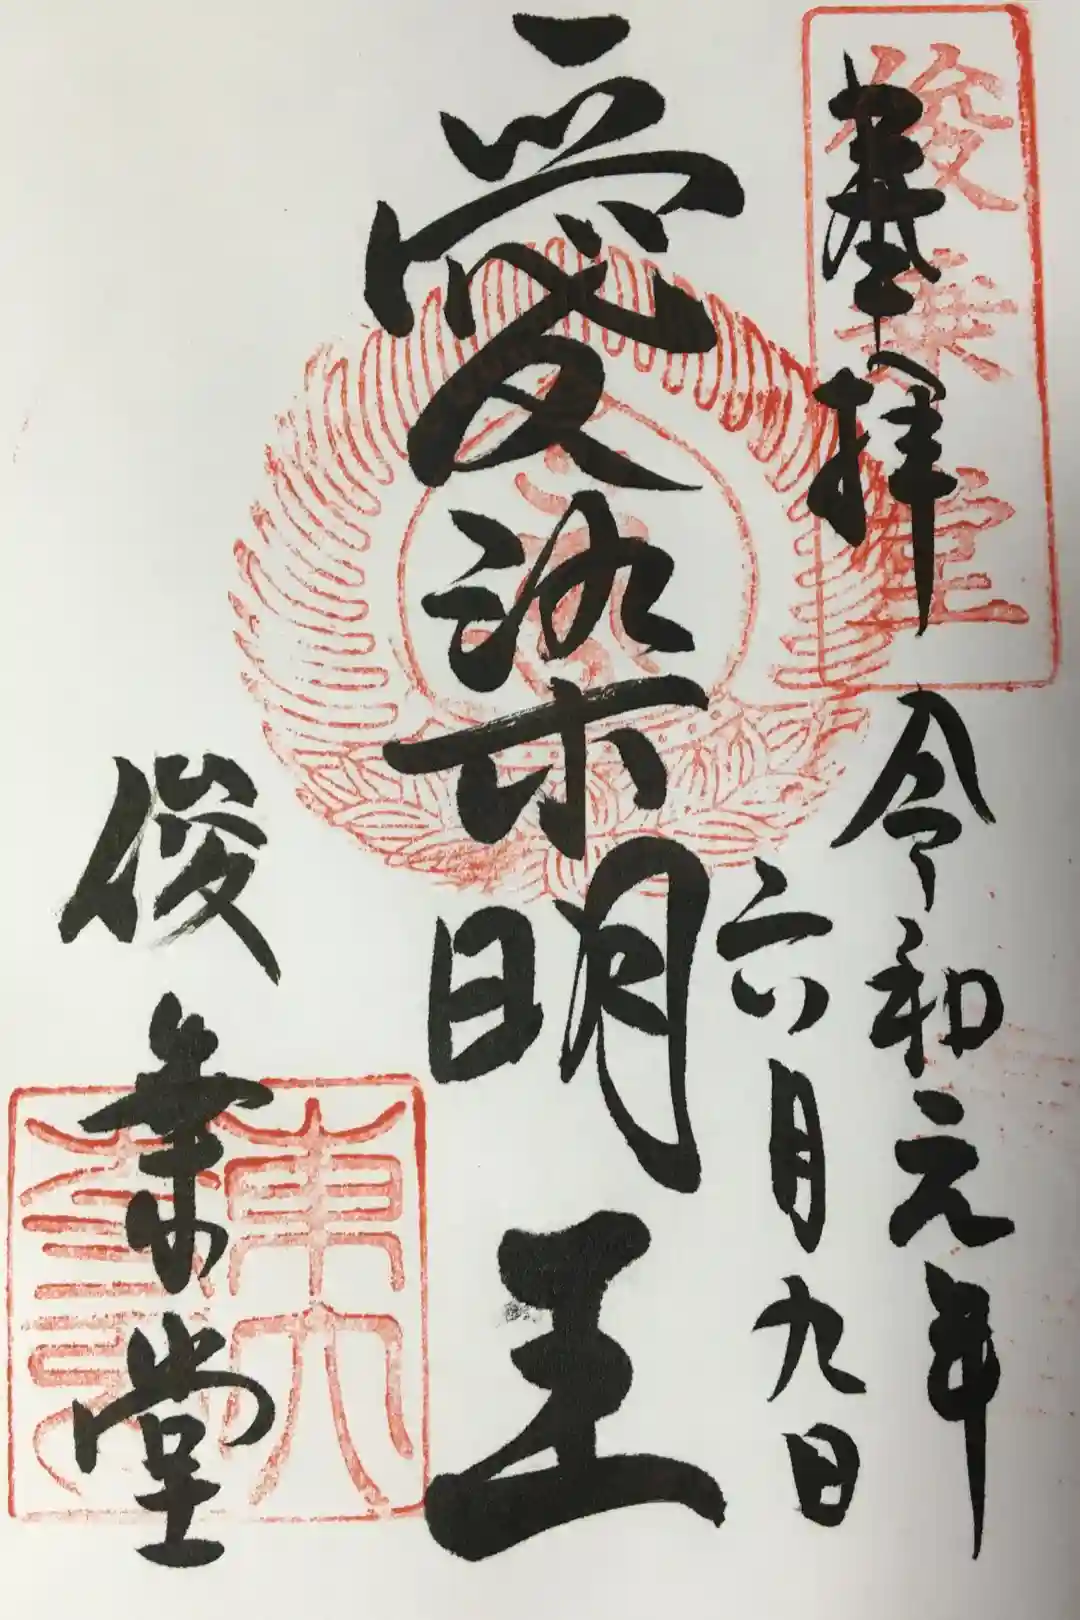 奉拝
俊乗堂
令和元年
六月九日
愛染明王
俊乗堂
東大